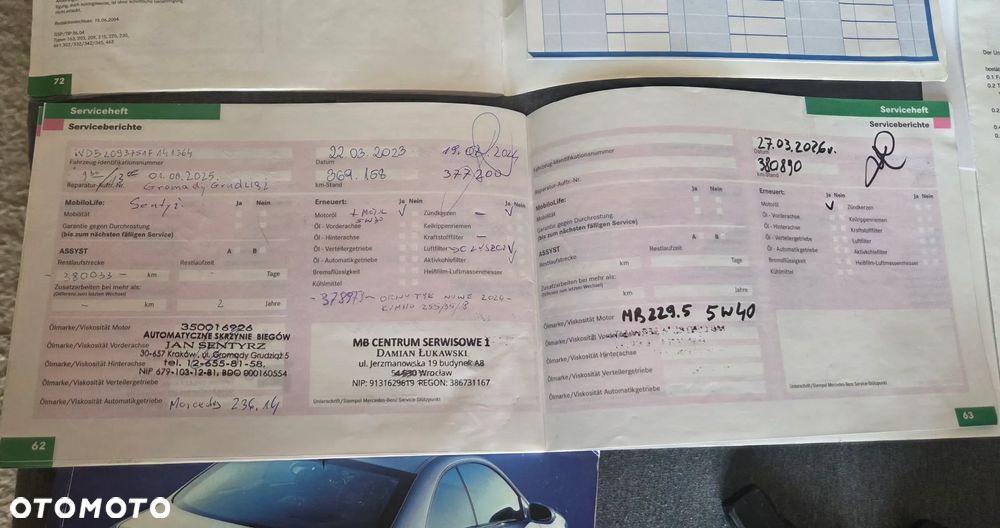 Redaktionsschluss: 18.06.2004
72
Serviceheft
Serviceberichte
Fahrzeug-Identifikationsnummer
01.08.2025.
Reparatur-Auftr.-Nr.
Gromady Grudziąż
MobiloLife:
Ja Nein
Mobilität
Garantie gegen Durchrostung
(bis zum nächsten fälligen Service)
ASSYST
A B
Restlaufstrecke
Restlaufzeit
km
Tage
Zusatzarbeiten bei mehr als:
(Differenz zum letzten Wechsel)
km
2
Jahre
Ölmarke/Viskosität Motor
350016926
AUTOMATYCZNE SKRZYNIE BIEGÓW
Ölmarke/Viskosität Vorderachse
JAN SENTYRZ
30-657 Kraków, ul. Gromady Grudziąż 5
Ölmarke/Viskosität Hinterachse
Tel. 12-655-81-58,
NIP 679-103-12-81, BDO 000160554
Ölmarke/Viskosität Verteilergetriebe
Ölmarke/Viskosität Automatikgetriebe
Mercedes 236.14
62
22.03.2023
Datum
369.168
377200
km-Stand
Erneuert:
Ja Nein
Ja Nein
Motoröl
5W30
Zündkerzen
Öl - Vorderachse
Keilrippenriemen
Öl - Hinterachse
Kraftstofffilter
Öl - Verteilergetriebe
Luftfilter
Öl - Automatikgetriebe
Aktivkohlefilter
Bremsflüssigkeit
Heißfilm-Luftmassenmesser
Kühlmittel
MB CENTRUM SERWISOWE 1
DAMIAN ŁUKAWSKI
ul. Jerzmanowska 19 budynek A8
54-530 Wrocław
NIP: 9131629819 REGON: 386731167
Unterschrift/Stempel Mercedes-Benz Service-Stützpunkt
Serviceheft
Serviceberichte
Fahrzeug-Identifikationsnummer
Reparatur-Auftr.-Nr.
MobiloLife:
Ja Nein
Mobilität
Garantie gegen Durchrostung
(bis zum nächsten fälligen Service)
ASSYST
A B
Restlaufstrecke
Restlaufzeit
km
Tage
Zusatzarbeiten bei mehr als:
(Differenz zum letzten Wechsel)
km
Jahre
Ölmarke/Viskosität Motor
MB 229.5 5W40
Ölmarke/Viskosität Vorderachse
Ölmarke/Viskosität Hinterachse
Ölmarke/Viskosität Verteilergetriebe
Ölmarke/Viskosität Automatikgetriebe
27.03.2026r.
Datum
380890
km-Stand
Erneuert:
Ja Nein
Ja Nein
Motoröl
Zündkerzen
Öl - Vorderachse
Keilrippenriemen
Öl - Hinterachse
Kraftstofffilter
Öl - Verteilergetriebe
Luftfilter
Öl - Automatikgetriebe
Aktivkohlefilter
Bremsflüssigkeit
Heißfilm-Luftmassenmesser
Kühlmittel
Unterschrift/Stempel Mercedes-Benz Service-Stützpunkt
63
OTOMOTO